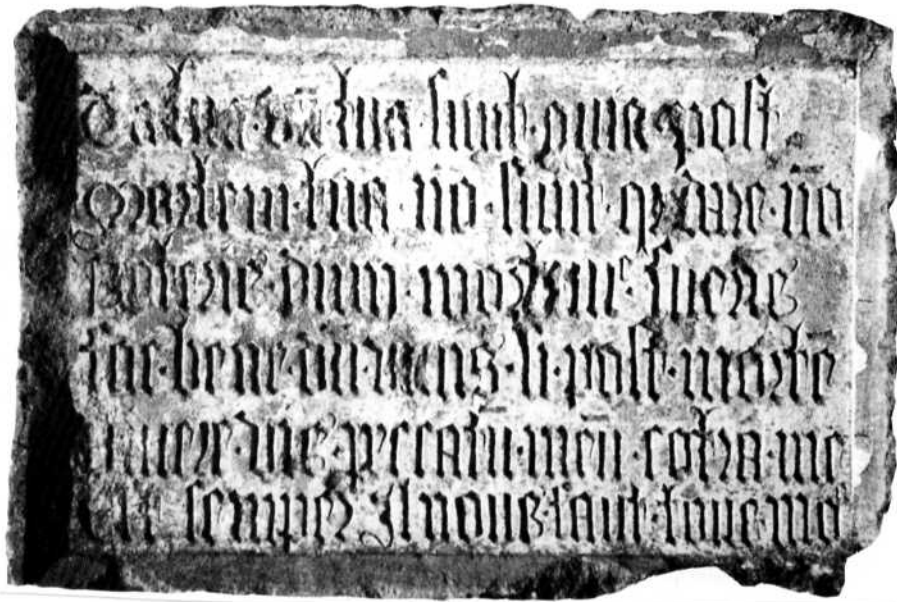 Da tua dū tua sunt quia post
mortem tua nō sunt dare nō
poteris dum mortuus fueris
fac bene dū vivens si post mortē
vivere vis peccatū meū cōtra me
est semper Il nous faut tous mo